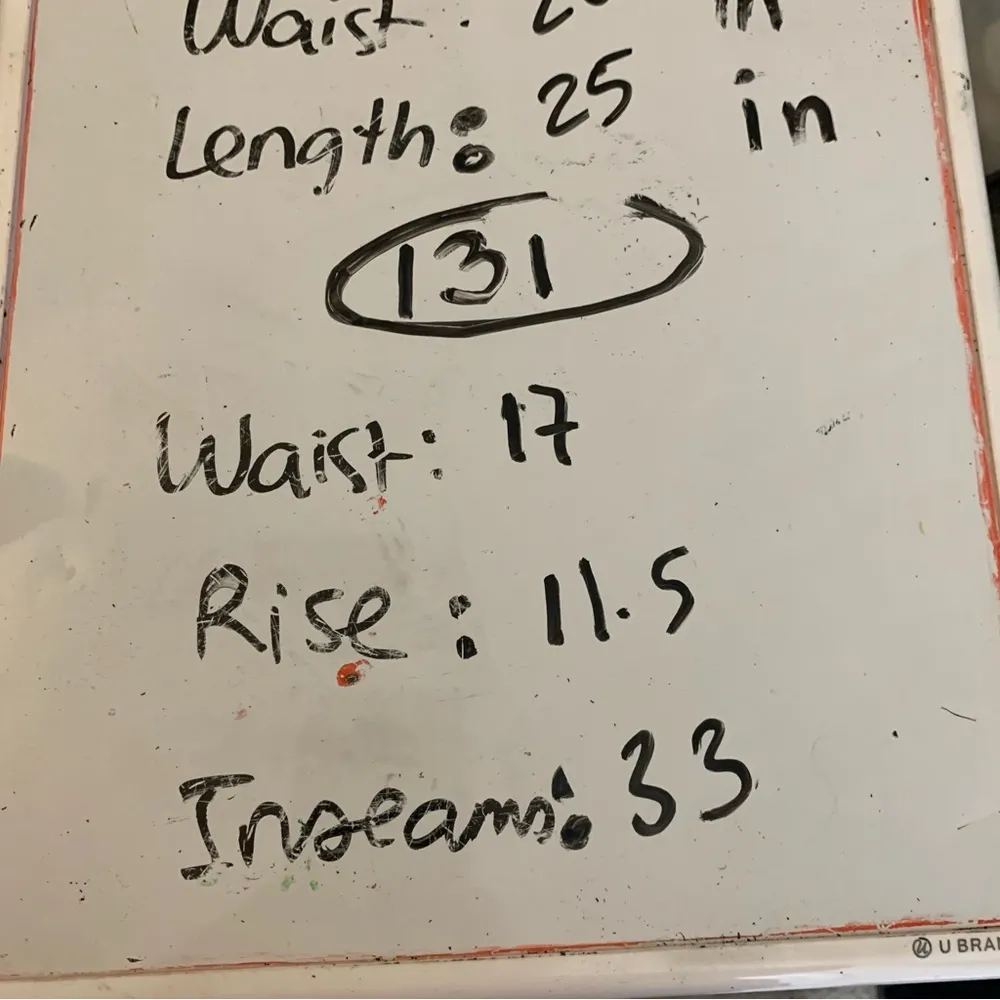 Waist: in
Length: 25 in
131
Waist: 17
Rise: 11.5
Inseams: 33
U BRAN